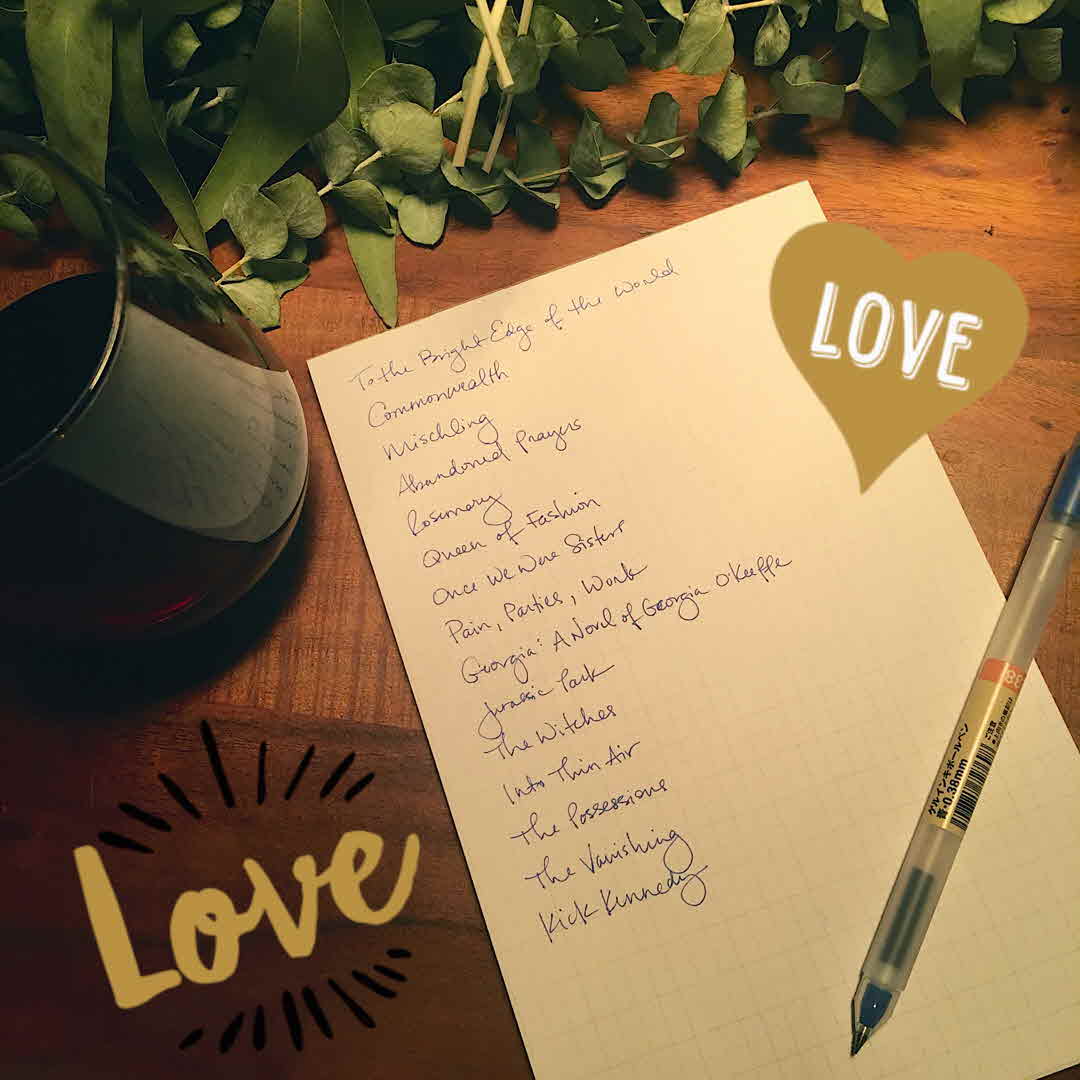 To the Bright Edge of the World
Commonwealth
Mischling
Abandoned Prayers
Rosemary
Queen of Fashion
Once We Were Sisters
Pain, Parties, Work
Georgia: A Novel of Georgia O'Keeffe
Jurassic Park
The Witches
Into Thin Air
The Possessions
The Vanishing
Kick Kennedy
LOVE
Love
ゲルインキボールペン
青・0.38mm